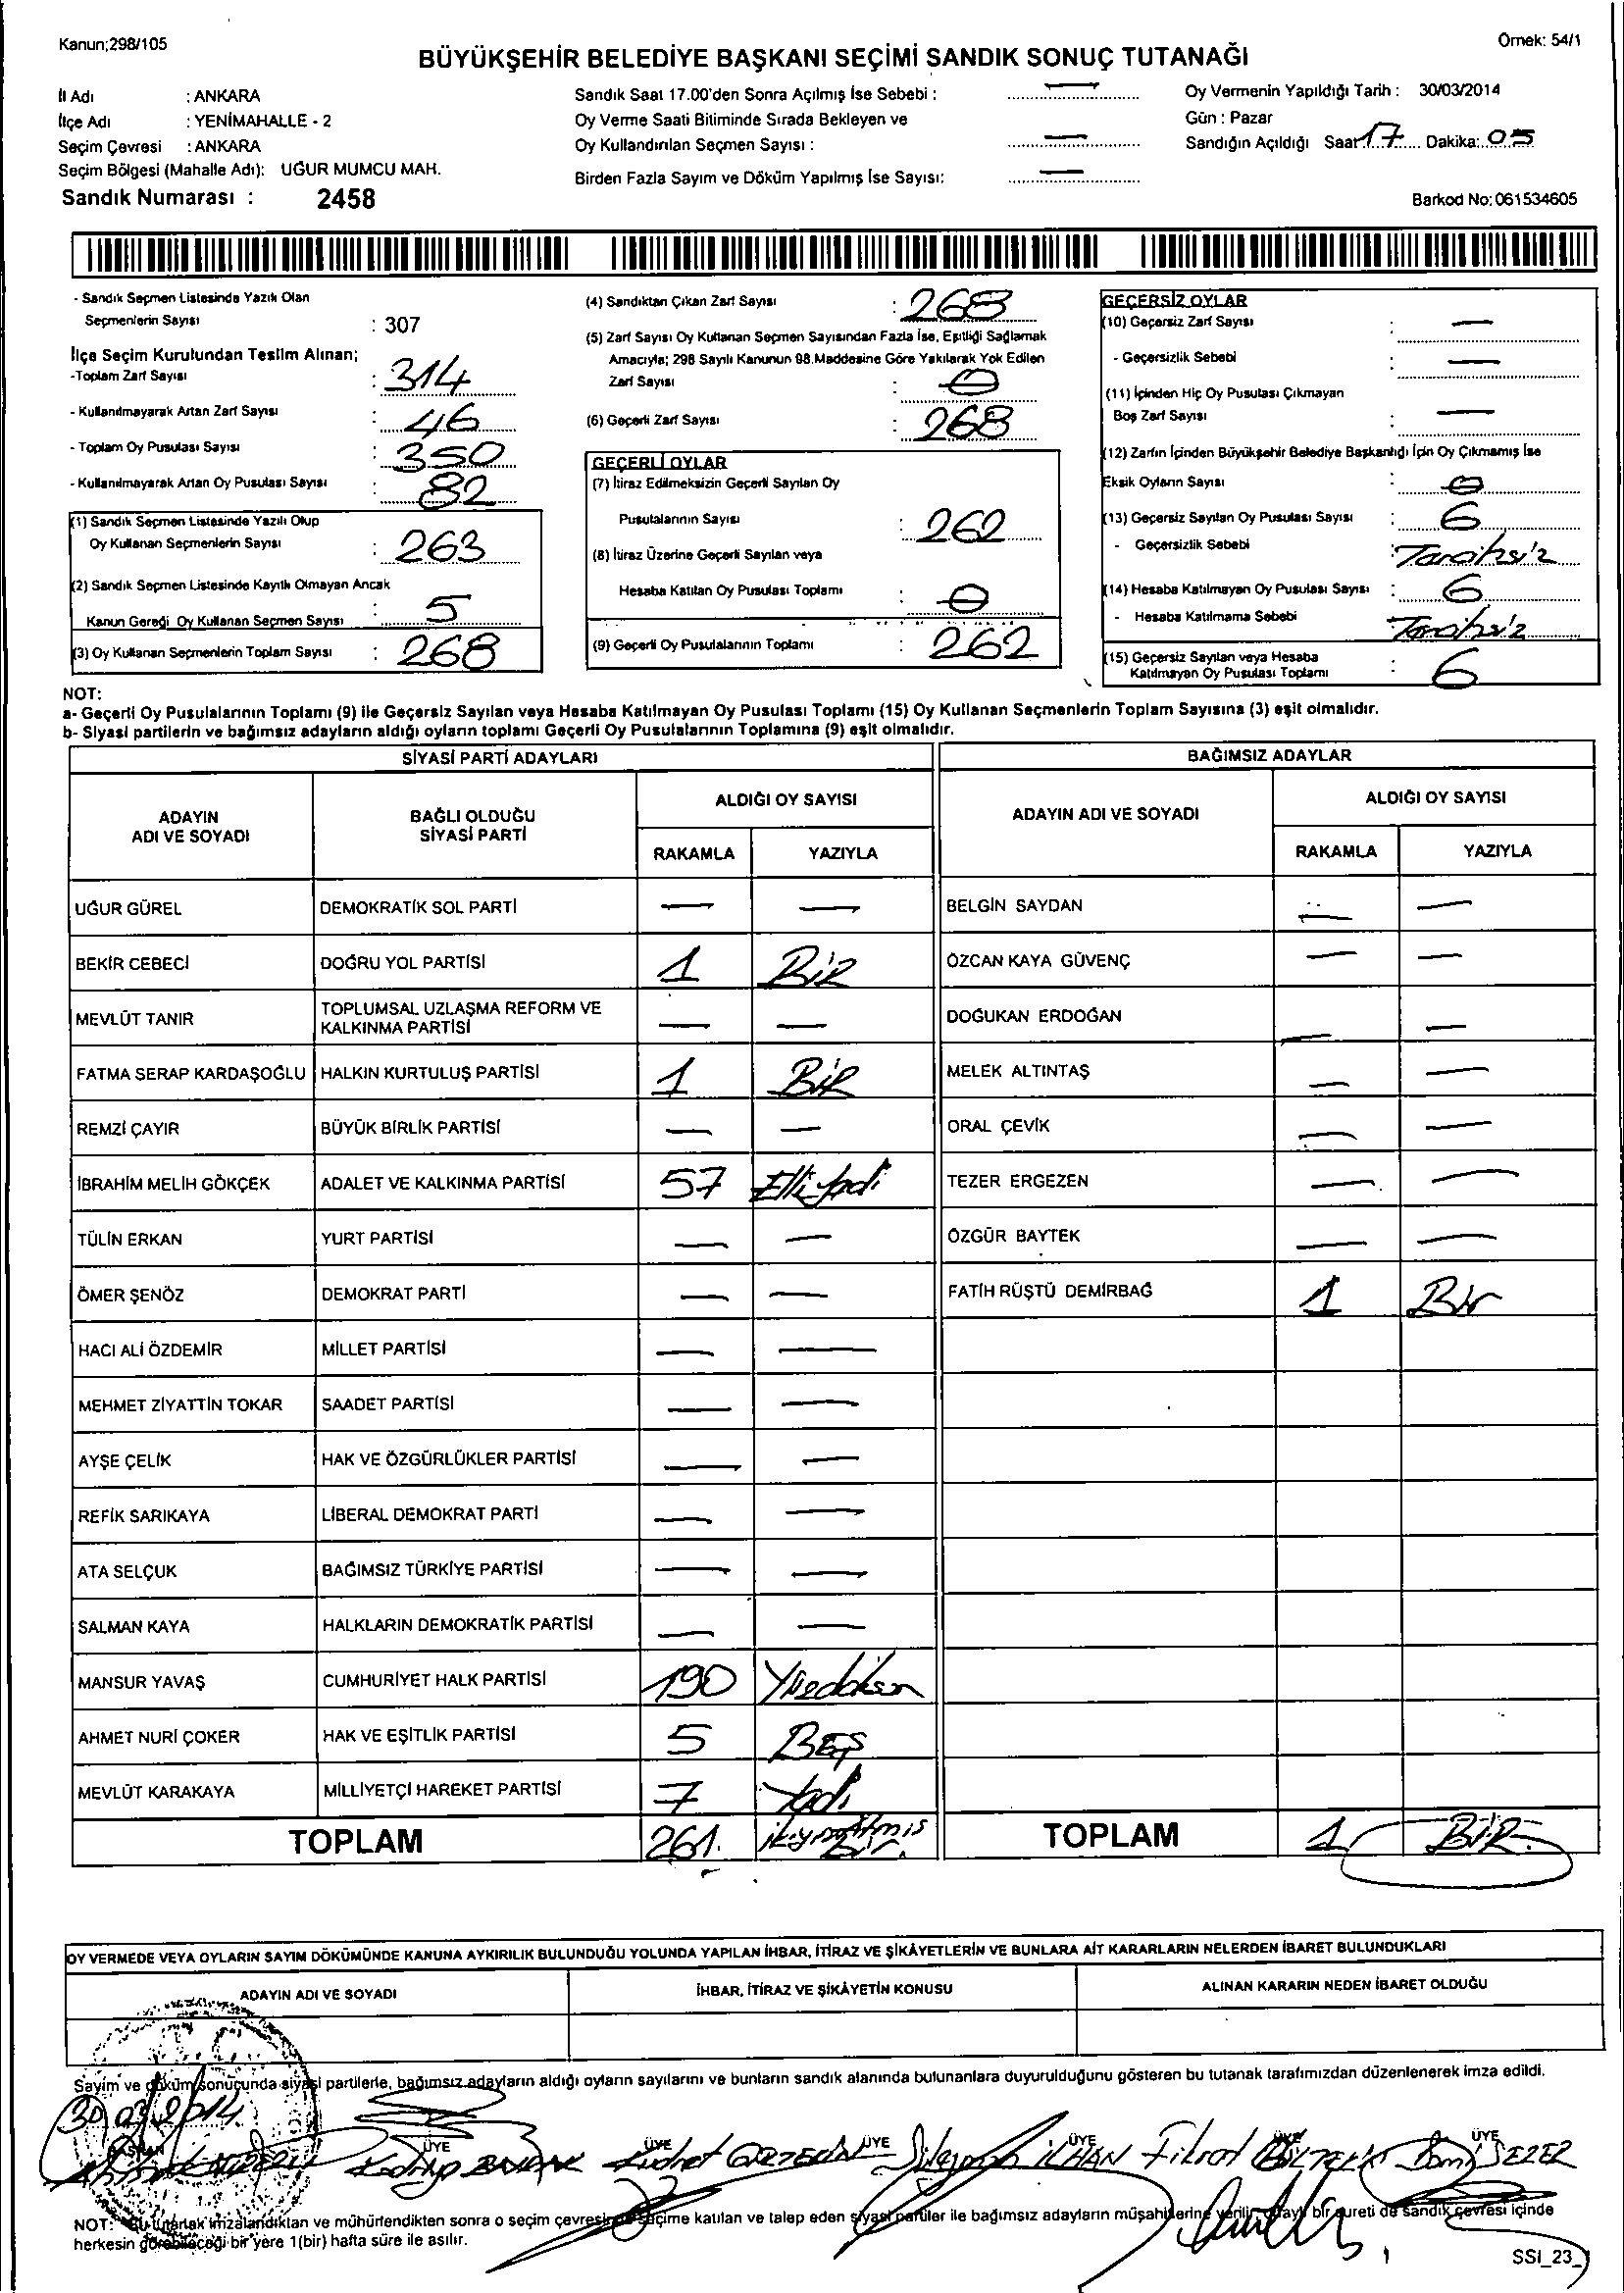 Kanun;298/105
Örnek: 54/1
BÜYÜKŞEHİR BELEDİYE BAŞKANI SEÇİMİ SANDIK SONUÇ TUTANAĞI
İl Adı : ANKARA
İlçe Adı : YENİMAHALLE - 2
Seçim Çevresi : ANKARA
Seçim Bölgesi (Mahalle Adı): UĞUR MUMCU MAH.
Sandık Numarası : 2458
Sandık Saat 17.00'den Sonra Açılmış İse Sebebi : —
Oy Verme Saati Bitiminde Sırada Bekleyen ve
Oy Kullandırılan Seçmen Sayısı : —
Birden Fazla Sayım ve Döküm Yapılmış İse Sayısı: —
Oy Vermenin Yapıldığı Tarih : 30/03/2014
Gün : Pazar
Sandığın Açıldığı Saat 17 Dakika: 05
Barkod No: 061534605
- Sandık Seçmen Listesinde Yazılı Olan
Seçmenlerin Sayısı : 307
İlçe Seçim Kurulundan Teslim Alınan;
-Toplam Zarf Sayısı : 314
- Kullanılmayarak Artan Zarf Sayısı : 46
- Toplam Oy Pusulası Sayısı : 350
- Kullanılmayarak Artan Oy Pusulası Sayısı : 82
(1) Sandık Seçmen Listesinde Yazılı Olup
Oy Kullanan Seçmenlerin Sayısı : 263
(2) Sandık Seçmen Listesinde Kayıtlı Olmayan Ancak
Kanun Gereği Oy Kullanan Seçmen Sayısı : 5
(3) Oy Kullanan Seçmenlerin Toplam Sayısı : 268
(4) Sandıktan Çıkan Zarf Sayısı : 268
(5) Zarf Sayısı Oy Kullanan Seçmen Sayısından Fazla İse, Eşitliği Sağlamak
Amacıyla; 298 Sayılı Kanunun 98.Maddesine Göre Yakılarak Yok Edilen
Zarf Sayısı : 0
(6) Geçerli Zarf Sayısı : 268
GEÇERLİ OYLAR
(7) İtiraz Edilmeksizin Geçerli Sayılan Oy
Pusulalarının Sayısı : 262
(8) İtiraz Üzerine Geçerli Sayılan veya
Hesaba Katılan Oy Pusulası Toplamı : 0
(9) Geçerli Oy Pusulalarının Toplamı : 262
GEÇERSİZ OYLAR
(10) Geçersiz Zarf Sayısı : —
- Geçersizlik Sebebi : —
(11) İçinden Hiç Oy Pusulası Çıkmayan
Boş Zarf Sayısı : —
(12) Zarfın İçinden Büyükşehir Belediye Başkanlığı İçin Oy Çıkmamış İse
Eksik Oyların Sayısı : 0
(13) Geçersiz Sayılan Oy Pusulası Sayısı : 6
- Geçersizlik Sebebi : Tercihsiz
(14) Hesaba Katılmayan Oy Pusulası Sayısı : 6
- Hesaba Katılmama Sebebi : Tercihsiz
(15) Geçersiz Sayılan veya Hesaba
Katılmayan Oy Pusulası Toplamı : 6
NOT:
a- Geçerli Oy Pusulalarının Toplamı (9) ile Geçersiz Sayılan veya Hesaba Katılmayan Oy Pusulası Toplamı (15) Oy Kullanan Seçmenlerin Toplam Sayısına (3) eşit olmalıdır.
b- Siyasi partilerin ve bağımsız adayların aldığı oyların toplamı Geçerli Oy Pusulalarının Toplamına (9) eşit olmalıdır.
SİYASİ PARTİ ADAYLARI
ADAYIN
ADI VE SOYADI
BAĞLI OLDUĞU
SİYASİ PARTİ
ALDIĞI OY SAYISI
RAKAMLA YAZIYLA
UĞUR GÜREL DEMOKRATİK SOL PARTİ — —
BEKİR CEBECİ DOĞRU YOL PARTİSİ 1 BİR
MEVLÜT TANIR TOPLUMSAL UZLAŞMA REFORM VE
KALKINMA PARTİSİ — —
FATMA SERAP KARDAŞOĞLU HALKIN KURTULUŞ PARTİSİ 1 BİR
REMZİ ÇAYIR BÜYÜK BİRLİK PARTİSİ — —
İBRAHİM MELİH GÖKÇEK ADALET VE KALKINMA PARTİSİ 57 Elli yedi
TÜLİN ERKAN YURT PARTİSİ — —
ÖMER ŞENÖZ DEMOKRAT PARTİ — —
HACI ALİ ÖZDEMİR MİLLET PARTİSİ — —
MEHMET ZİYATTİN TOKAR SAADET PARTİSİ — —
AYŞE ÇELİK HAK VE ÖZGÜRLÜKLER PARTİSİ — —
REFİK SARIKAYA LİBERAL DEMOKRAT PARTİ — —
ATA SELÇUK BAĞIMSIZ TÜRKİYE PARTİSİ — —
SALMAN KAYA HALKLARIN DEMOKRATİK PARTİSİ — —
MANSUR YAVAŞ CUMHURİYET HALK PARTİSİ 190
AHMET NURİ ÇOKER HAK VE EŞİTLİK PARTİSİ 5 BEŞ
MEVLÜT KARAKAYA MİLLİYETÇİ HAREKET PARTİSİ 7 Yedi
TOPLAM 261. ikiyüzaltmış
Bir.
BAĞIMSIZ ADAYLAR
ADAYIN ADI VE SOYADI
ALDIĞI OY SAYISI
RAKAMLA YAZIYLA
BELGİN SAYDAN — —
ÖZCAN KAYA GÜVENÇ — —
DOĞUKAN ERDOĞAN — —
MELEK ALTINTAŞ — —
ORAL ÇEVİK — —
TEZER ERGEZEN — —
ÖZGÜR BAYTEK — —
FATİH RÜŞTÜ DEMİRBAĞ 1 Bir
TOPLAM 1 BİR.
OY VERMEDE VEYA OYLARIN SAYIM DÖKÜMÜNDE KANUNA AYKIRILIK BULUNDUĞU YOLUNDA YAPILAN İHBAR, İTİRAZ VE ŞİKÂYETLERİN VE BUNLARA AİT KARARLARIN NELERDEN İBARET BULUNDUKLARI
ADAYIN ADI VE SOYADI İHBAR, İTİRAZ VE ŞİKÂYETİN KONUSU ALINAN KARARIN NEDEN İBARET OLDUĞU
Sayım ve döküm sonucunda siyasi partilerle, bağımsız adayların aldığı oyların sayılarını ve bunların sandık alanında bulunanlara duyurulduğunu gösteren bu tutanak tarafımızdan düzenlenerek imza edildi.
30 03 2014
BAŞKAN ÜYE ÜYE ÜYE ÜYE ÜYE ÜYE
İLHAN Fikret SEZER
NOT: Bu tutanak imzalandıktan ve mühürlendikten sonra o seçim çevresinde seçime katılan ve talep eden siyasi partiler ile bağımsız adayların müşahitlerine verilir, onaylı bir sureti de sandık çevresi içinde
herkesin görebileceği bir yere 1(bir) hafta süre ile asılır.
SSI_23_